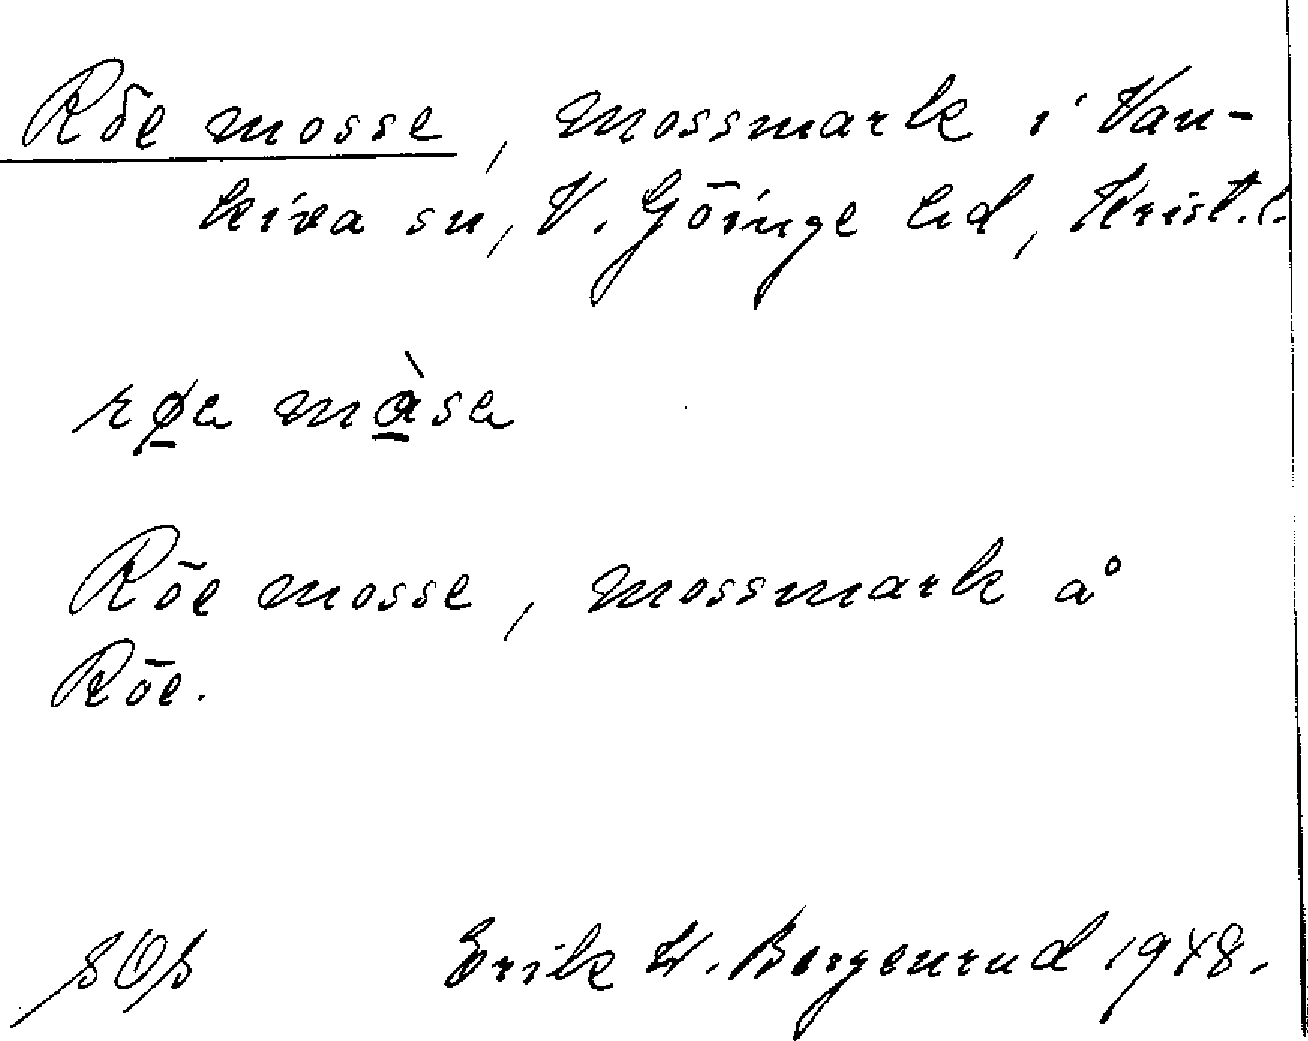 Röe mosse, mossmark i Van-
kiva sn, V. Göinge hd, Krist.l.
røa màsa
Röe mosse, mossmark å
Röe.
Erik W. Borgenrud 1948.